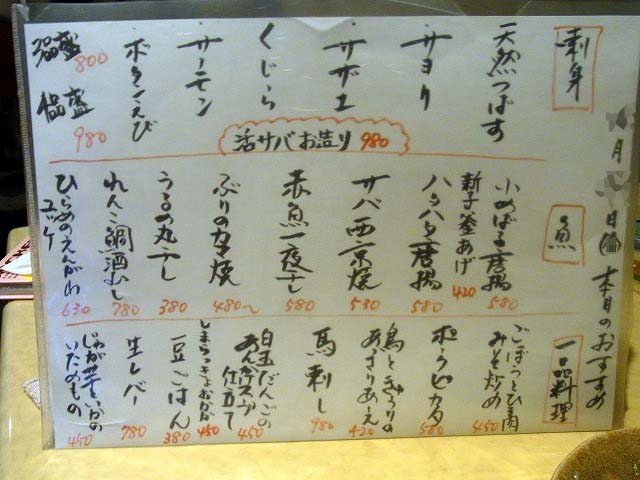 月 日 本日のおすすめ
刺身
天然つばす
サヨリ
サザエ
くじら
サーモン
ボタンえび
盛 800
盛 980
活サバお造り 980
魚
小めばる唐揚 580
新子釜あげ 420
ハタハタ唐揚 580
サバ西京焼 530
赤魚一夜干し 580
ぶりのカマ焼 480〜
うるめ丸干し 380
れんこ鯛酒むし 780
ひらめのえんがわ
ユッケ 630
一品料理
ごぼうとひき肉
みそ炒め 450
ポークピカタ 580
鶏ときゅうりの
あっさりあえ 420
馬刺し 980
白玉だんごの
あんかけスープ
仕立て 450
しまらっきょおかか 450
豆ごはん 380
生レバー 780
じゃが芋といかの
いためもの 450